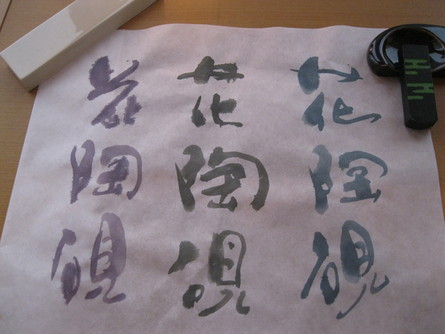 花陶硯
花陶硯
花陶硯